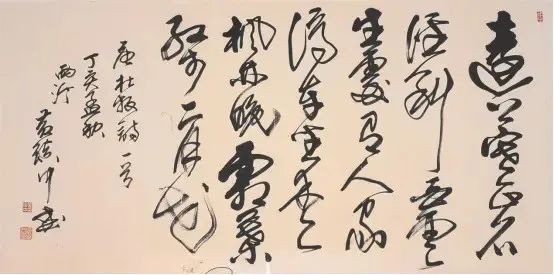 遠上寒山石
徑斜白雲
生處有人家
停車坐愛
楓林晚霜葉
紅於二月花
唐杜牧詩一首
丁亥孟秋